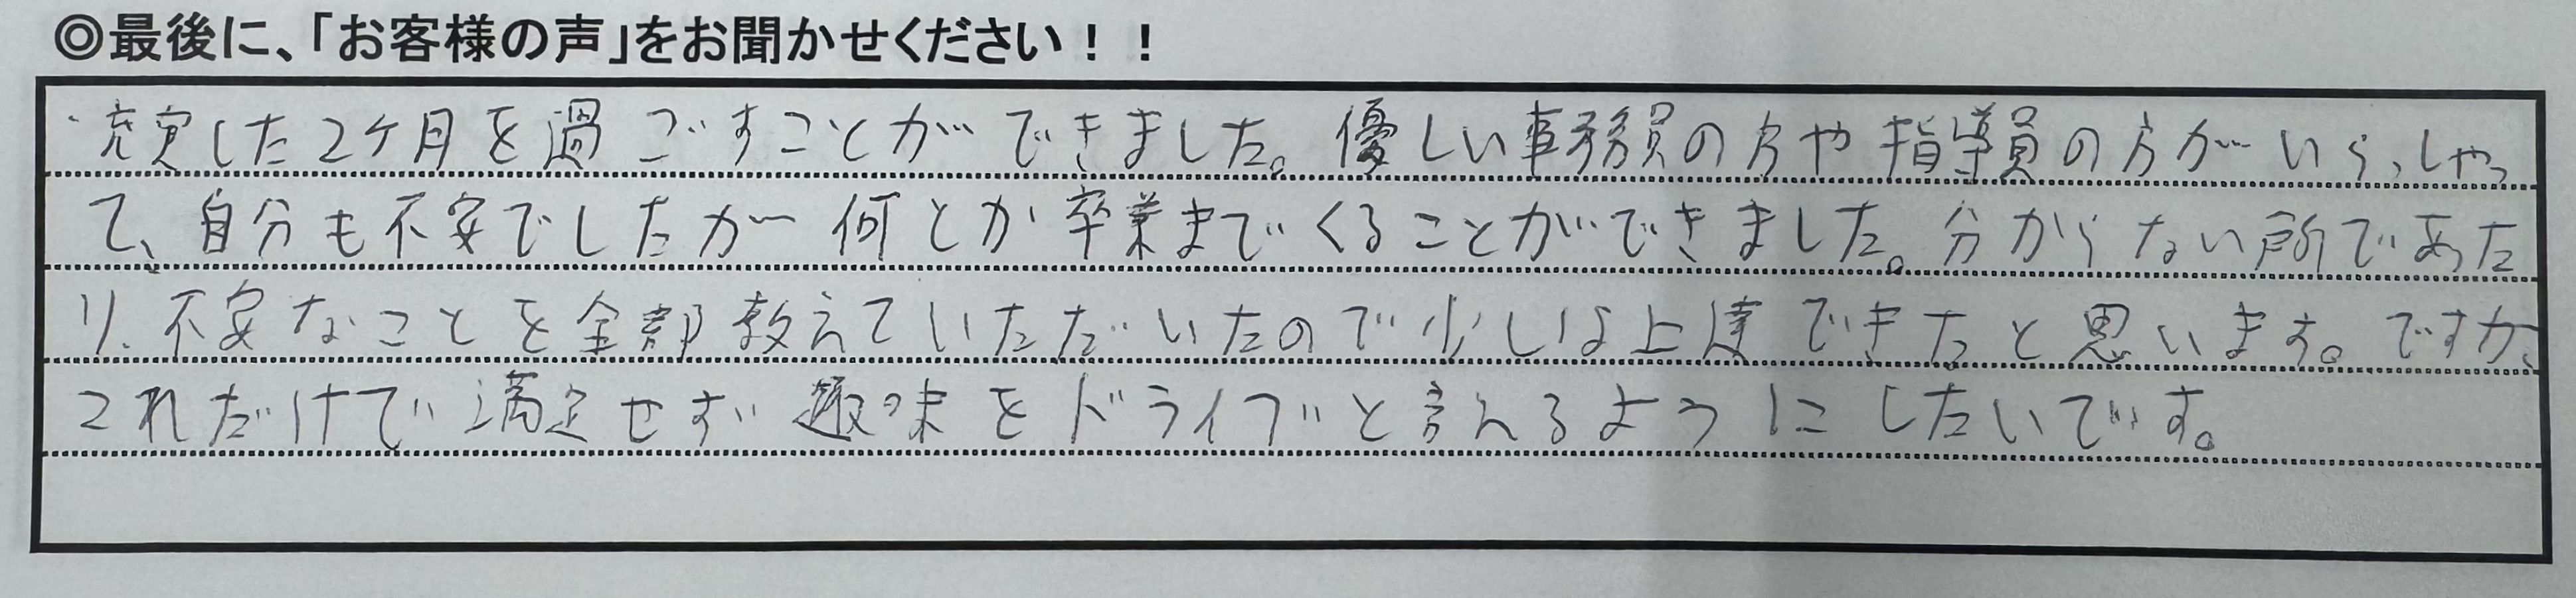 ◎最後に、「お客様の声」をお聞かせください！！
・充実した2ヶ月を過ごすことができました。優しい事務員の方や指導員の方がいらっしゃっ
て、自分も不安でしたが何とか卒業までくることができました。分からない所であった
り、不安なことを全部教えていただいたので少しは上達できたと思います。ですが、
これだけで満足せず趣味をドライブと言えるようにしたいです。